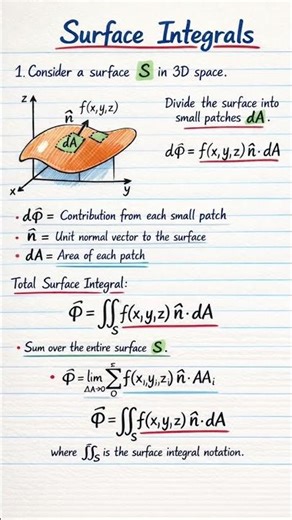 Surface Integrals
1. Consider a surface S in 3D space.
z
n̂
f(x,y,z)
dA
x
y
Divide the surface into
small patches dA.
dΦ⃗ = f(x,y,z) n̂ · dA
• dΦ⃗ = Contribution from each small patch
• n̂ = Unit normal vector to the surface
• dA = Area of each patch
Total Surface Integral:
Φ⃗ = ∬_S f(x,y,z) n̂ · dA
• Sum over the entire surface S.
• Φ⃗ = lim_{ΔA→0} Σ f(x_i,y_i,z_i) n̂ · AA_i
Φ⃗ = ∬_S f(x,y,z) n̂ · dA
where ∬_S is the surface integral notation.